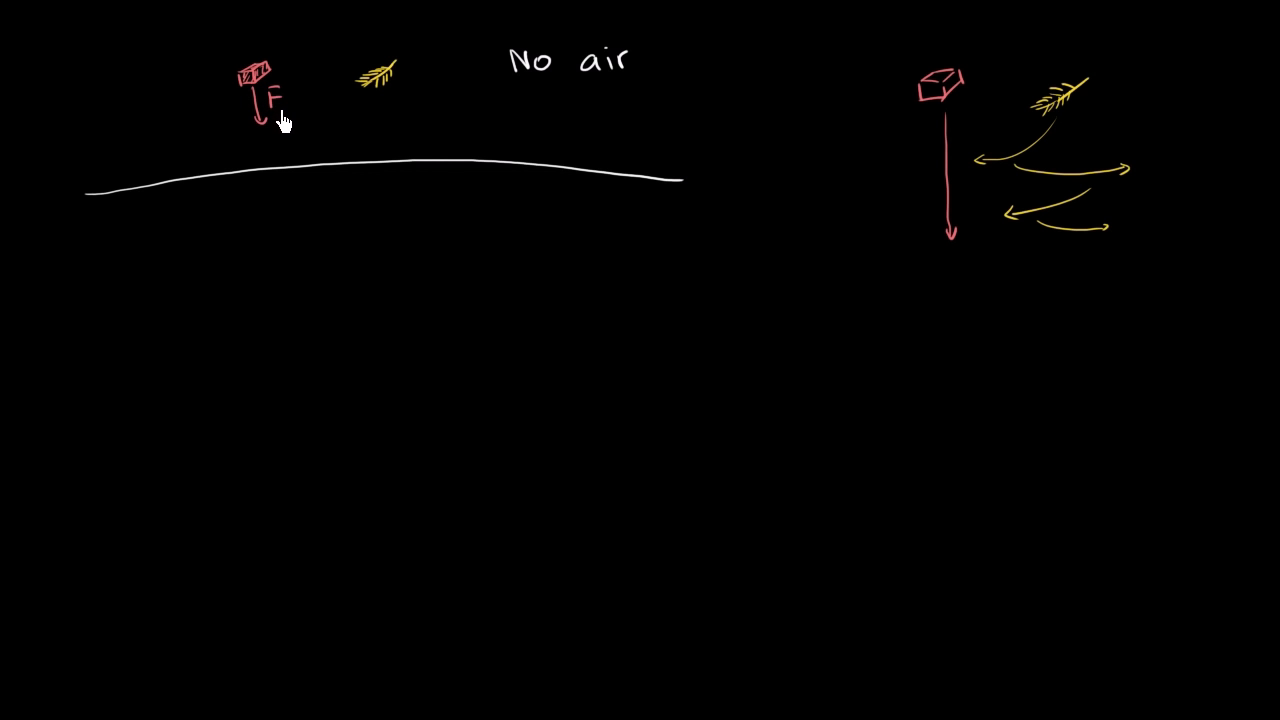 No air
F